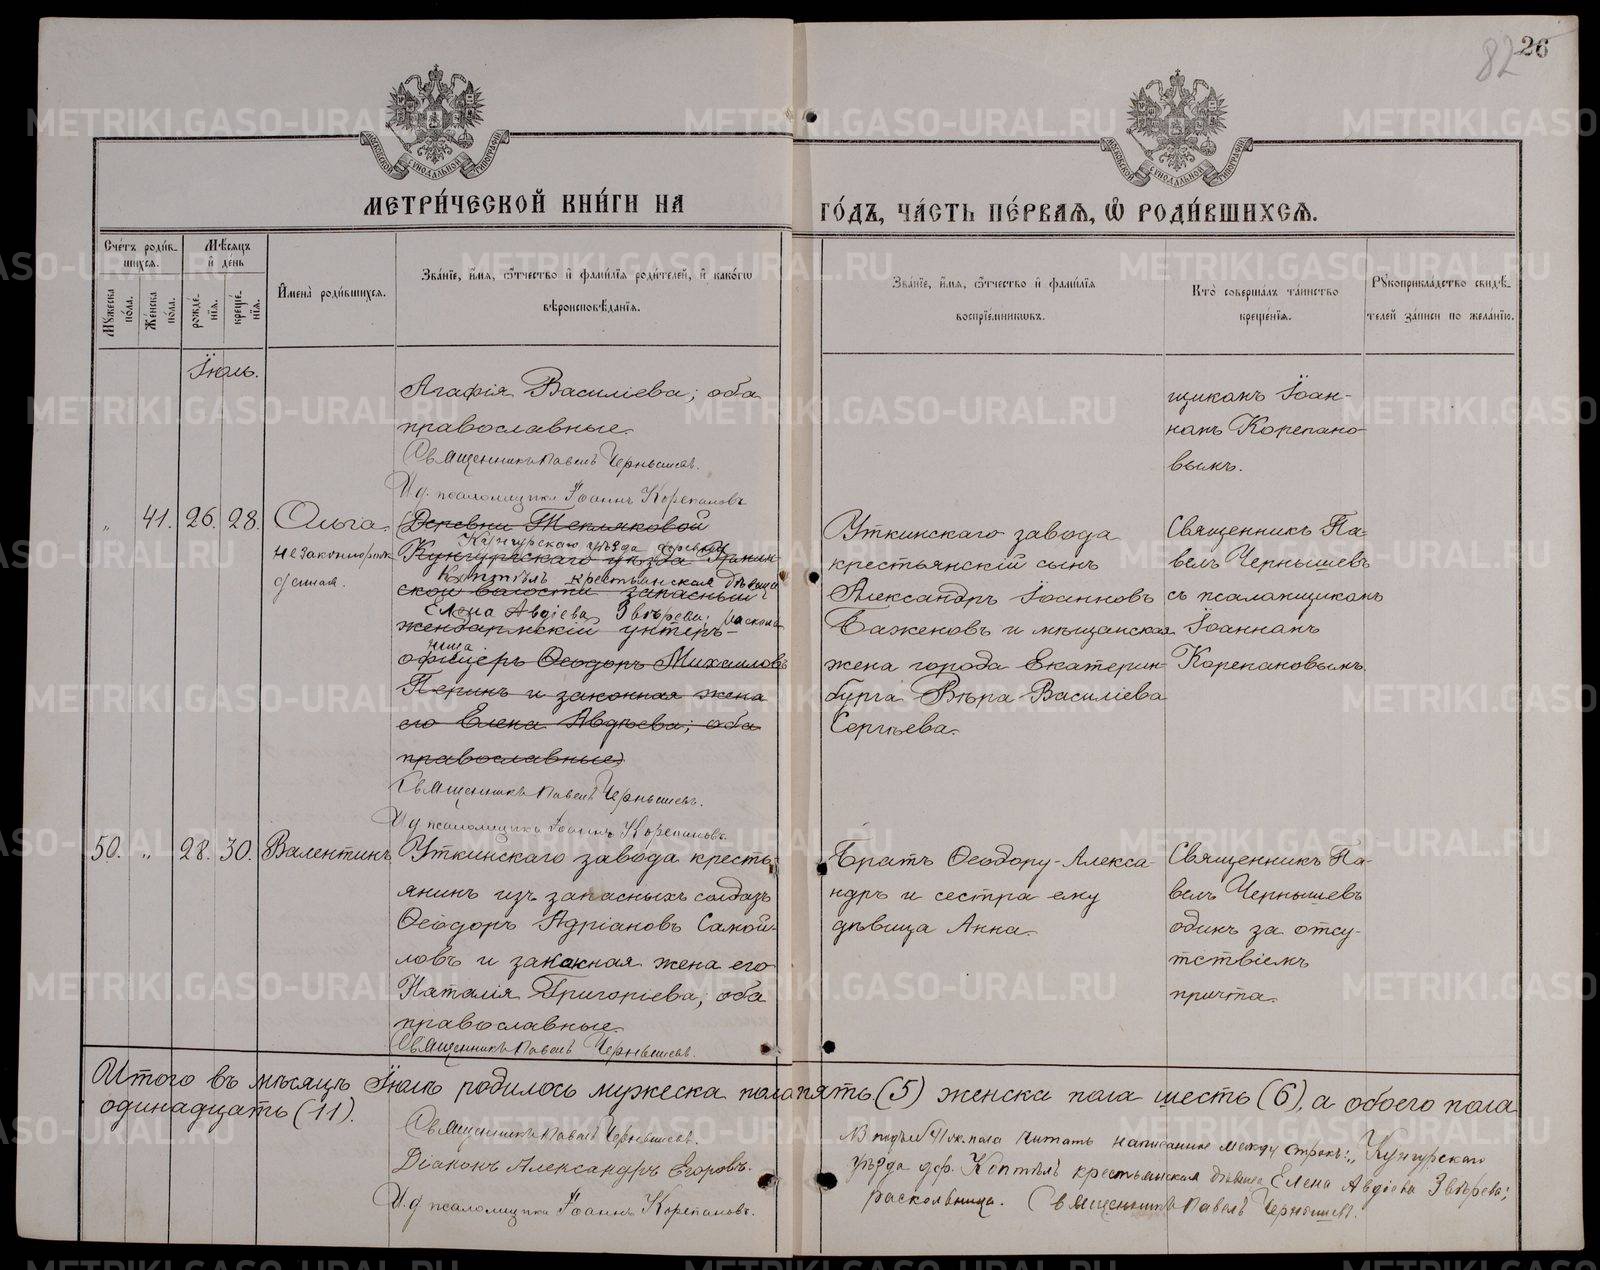 82 26
МЕТРИ́ЧЕСКОЙ КНИ́ГИ НА
ГО́ДЪ, ЧА́СТЬ ПЕ́РВАѦ, Ѽ РОДИ́ВШИХСѦ.
МОСКОВСКОЙ СѴНОДАЛЬНОЙ ТИПОГРАФІИ
МОСКОВСКОЙ СѴНОДАЛЬНОЙ ТИПОГРАФІИ
Сче́тъ роди́в-
шихсѧ.
Мꙋ́жеска по́ла.
Же́нска по́ла.
Мѣ́сѧцъ
и҆ де́нь
рожде́-
нїѧ.
креще́-
нїѧ.
И҆мена̀ роди́вшихсѧ.
Зва́нїе, и҆́мѧ, ѻ҆́тчество и҆ фами́лїѧ роди́телей, и҆ како́гѡ
вѣроисповѣ́данїѧ.
Зва́нїе, и҆́мѧ, ѻ҆́тчество и҆ фами́лїѧ
воспрїе́мникѡвъ.
Кто̀ соверша́лъ та́инство
креще́нїѧ.
Рꙋкоприкла́дство свидѣ́-
телей за́писи по жела́нїю.
Іюль.
Агафія Василіева; оба
православные.
Священникъ Павелъ Чернышевъ.
И д. псаломщика Іоаннъ Корепановъ
щикомъ Іоан-
номъ Корепано-
вымъ.
„ 41. 26. 28. Ольга
незаконнорож-
денная.
Деревни Тепляковой
Кунгурскаго уѣзда деревни
Кунгурскаго уѣзда
Коптѣлъ крестьянская дѣвица
ской волости запасный
Елена Авдіева Звѣрева; расколь
жендармскій унтеръ-
ница
офицеръ Ѳеодоръ Михаиловъ
Перинъ и законная жена
его Елена Авдѣева; оба
православные
Священникъ Павелъ Чернышевъ.
И д псаломщика Іоаннъ Корепановъ.
Уткинскаго завода
крестьянскій сынъ
Александръ Іоанновъ
Баженовъ и мѣщанская
жена города Екатерин-
бурга Вѣра Василіева
Сергѣева.
Священникъ Па-
велъ Чернышевъ
съ псаломщикомъ
Іоанномъ
Корепановымъ.
50. „ 28. 30. Валентинъ
Уткинскаго завода кресть-
янинъ изъ запасныхъ солдатъ
Ѳеодоръ Адріановъ Самой-
ловъ и законная жена его
Наталія Григоріева; оба
православные.
Священникъ Павелъ Чернышевъ.
Братъ Ѳеодору-Алекса-
ндръ и сестра ему
дѣвица Анна.
Священникъ Па-
велъ Чернышевъ
одинъ за отсу-
тствіемъ
причта.
Итого въ мѣсяцѣ Іюлѣ родилось мужеска пола пять (5) женска пола шесть (6), а обоего пола
одинадцать (11).
Священникъ Павелъ Чернышевъ.
Діаконъ Александръ Егоровъ.
И. д псаломщика Іоаннъ Корепановъ.
NB подъ № 41 ж. пола читать написанное между строкъ: „Кунгурскаго
уѣзда дер. Коптѣлъ крестьянская дѣвица Елена Авдіева Звѣрева;
раскольница. Священникъ Павелъ Чернышевъ.
METRIKI.GASO-URAL.RU